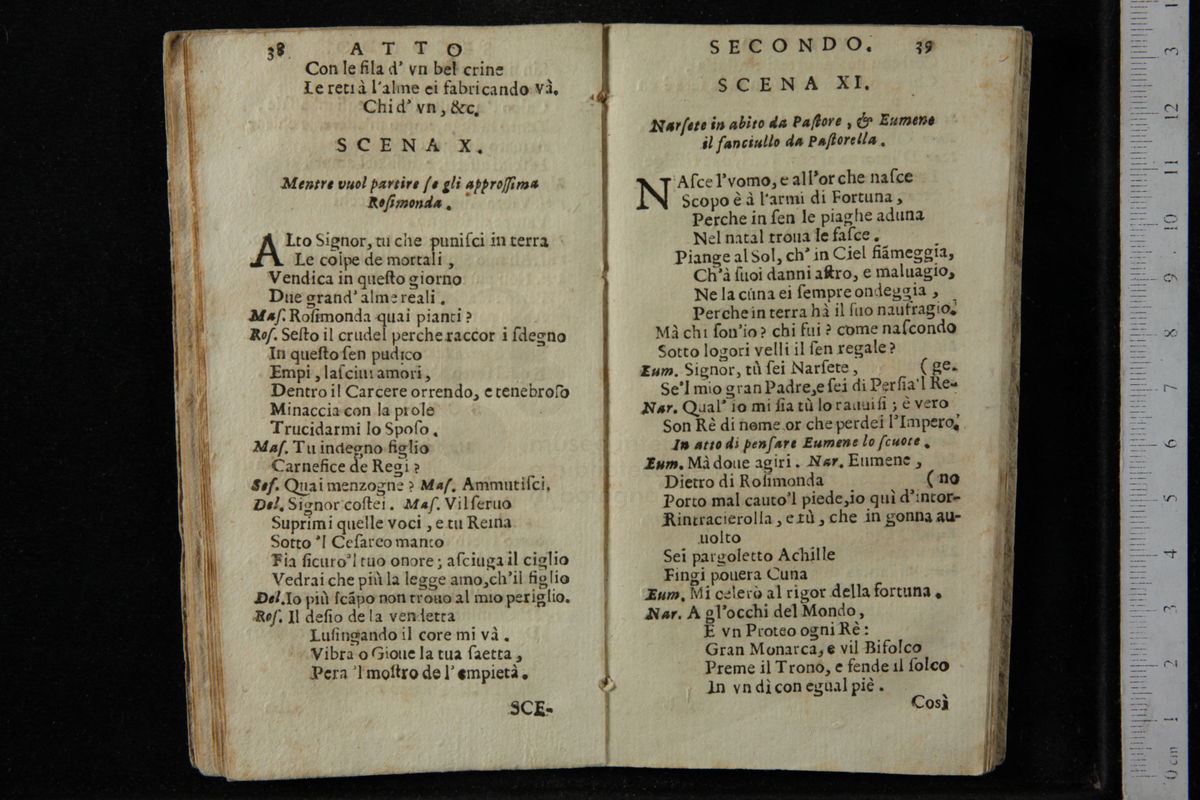 38 ATTO
Con le fila d' vn bel crine
Le reti à l'alme ei fabricando và.
Chi d' vn, &c.
SCENA X.
Mentre vuol partire ſe gli approſſima
Roſimonda.
ALto Signor, tu che puniſci in terra
Le colpe de mortali,
Vendica in queſto giorno
Due grand' alme reali.
Maſ. Roſimonda quai pianti?
Roſ. Seſto il crudel perche raccor i ſdegno
In queſto ſen pudico
Empi, laſciui amori,
Dentro il Carcere orrendo, e tenebroſo
Minaccia con la prole
Trucidarmi lo Spoſo.
Maſ. Tu indegno figlio
Carnefice de Regi?
Seſ. Quai menzogne? Maſ. Ammutiſci.
Del. Signor coſtei. Maſ. Vil ſeruo
Suprimi quelle voci, e tu Reina
Sotto 'l Ceſareo manto
Fia ſicuro'l tuo onore; aſciuga il ciglio
Vedrai che più la legge amo, ch'il figlio
Del. Io più ſcãpo non trouo al mio periglio.
Roſ. Il deſio de la vendetta
Luſingando il core mi và.
Vibra o Gioue la tua ſaetta,
Pera 'l moſtro de l' empietà.
SCE-
SECONDO. 39
SCENA XI.
Narſete in abito da Paſtore, & Eumene
il fanciullo da Paſtorella.
NAſce l'vomo, e all'or che naſce
Scopo è à l'armi di Fortuna,
Perche in ſen le piaghe aduna
Nel natal troua le faſce.
Piange al Sol, ch' in Ciel fiãmeggia,
Ch'à ſuoi danni aſtro, e maluagio,
Ne la cúna ei ſempre ondeggia,
Perche in terra hà il ſuo naufragio.
Mà chi ſon'io? chi fui? come naſcondo
Sotto logori velli il ſen regale?
Eum. Signor, tù ſei Narſete, (ge.
Se'l mio gran Padre, e ſei di Perſia'l Re-
Nar. Qual' io mi ſia tù lo rauuiſi; è vero
Son Rè di nome or che perdei l'Impero.
In atto di penſare Eumene lo ſcuote.
Eum. Mà doue agiri. Nar. Eumene,
Dietro di Roſimonda (no
Porto mal cauto'l piede, io quì d'intor-
Rintracierolla, e tù, che in gonna au-
uolto
Sei pargoletto Achille
Fingi pouera Cuna
Eum. Mi celerò al rigor della fortuna.
Nar. A gl'occhi del Mondo,
E vn Proteo ogni Rè:
Gran Monarca, e vil Bifolco
Preme il Trono, e fende il ſolco
In vn dì con egual piè.
Così